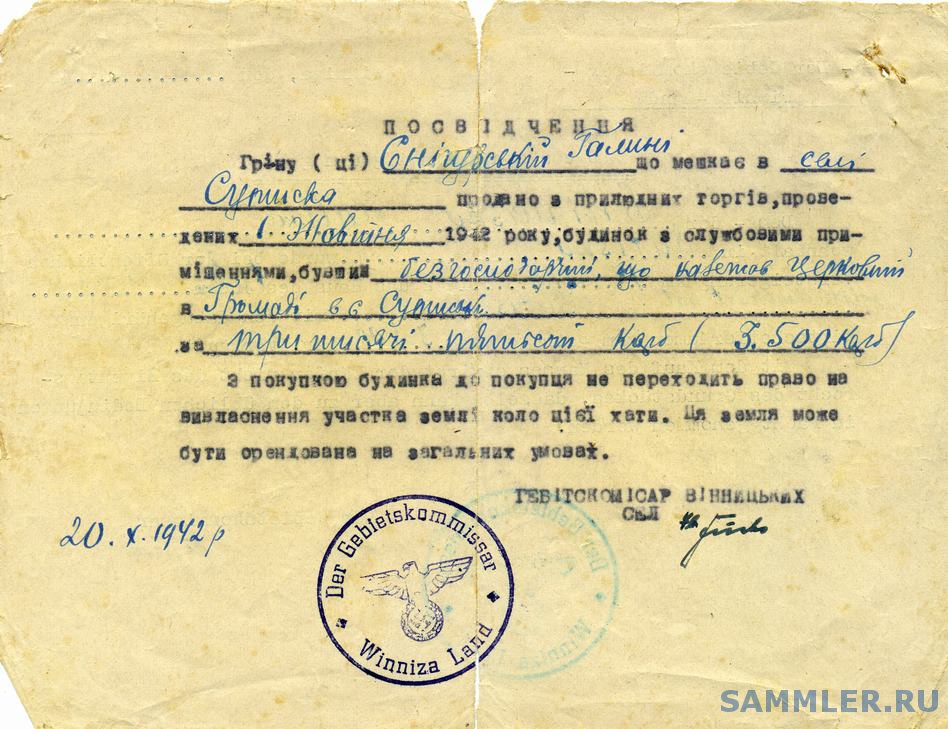 ПОСВІДЧЕННЯ
Гр-ну ( ці) Снігурській Галині що мешкає в селі
Сутиска продано з прилюдних торгів,прове-
дених 1 Жовтня 1942 року,будинок з службовими при-
міщеннями,бувший безгосподарний, що належав Церковній
в Громаді в с Сутиски
за три тисячі пятьсот карб ( 3.500 карб)
З покупкою будинка до покупця не переходить право на
вивласнення участка землі коло цієї хати. Ця земля може
бути орендована на загальних умовах.
ГЕБІТСКОМІСАР ВІННИЦЬКИХ
СЕЛ
20. X. 1942 р
Der Gebietskommissar
Winniza Land
Der Gebietskommissar
Winniza Land
SAMMLER.RU